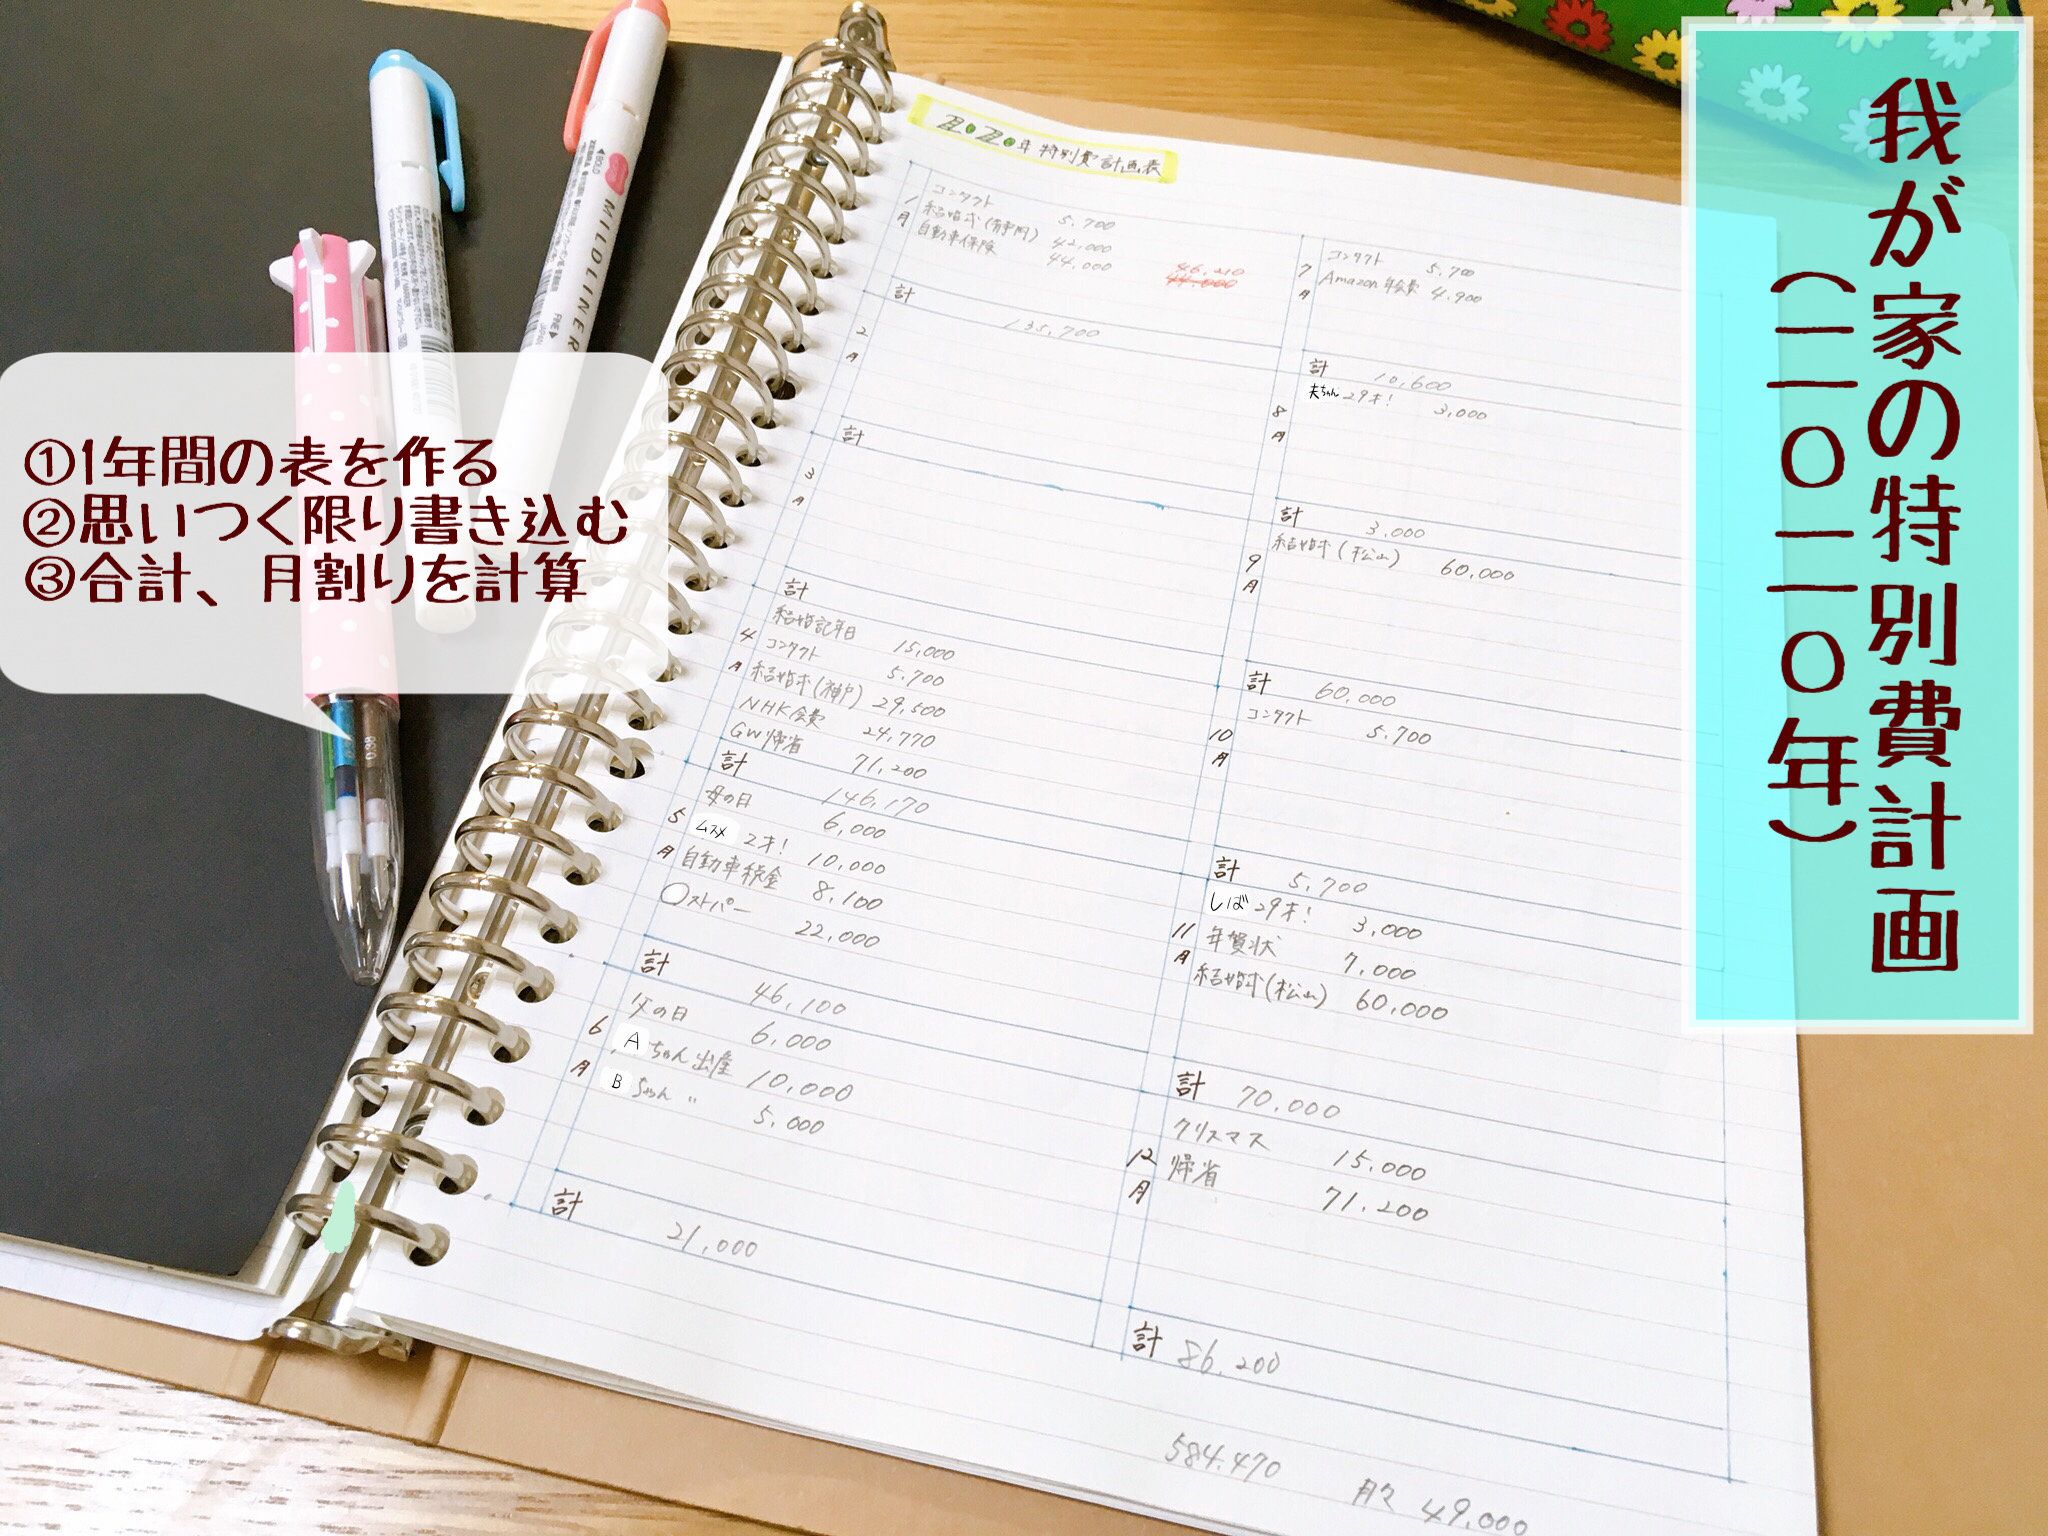 我が家の特別費計画
(二〇二〇年)
①1年間の表を作る
②思いつく限り書き込む
③合計、月割りを計算
MILDLINER
BOLD
ZEBRA
FINE
0.38
2020年特別費計画表
1月
コンタクト 5,700
結婚式(静岡) 42,000
自動車保険 44,000 46,210
44,000
計 135,700
2月
計
3月
計
4月
結婚記年日 15,000
コンタクト 5,700
結婚式(神戸) 29,500
NHK会費 24,770
GW帰省 71,200
計 146,170
5月
母の日 6,000
ムスメ 2才! 10,000
自動車税金 8,100
〇ストパー 22,000
計 46,100
6月
父の日 6,000
Aちゃん出産 10,000
Bちゃん 〃 5,000
計 21,000
7月
コンタクト 5,700
Amazon年会費 4,900
計 10,600
8月
夫ちゃん 29才! 3,000
計 3,000
9月
結婚式(松山) 60,000
計 60,000
10月
コンタクト 5,700
計 5,700
11月
しば 29才! 3,000
年賀状 7,000
結婚式(松山) 60,000
計 70,000
12月
クリスマス 15,000
帰省 71,200
計 86,200
584,470 月々 49,000